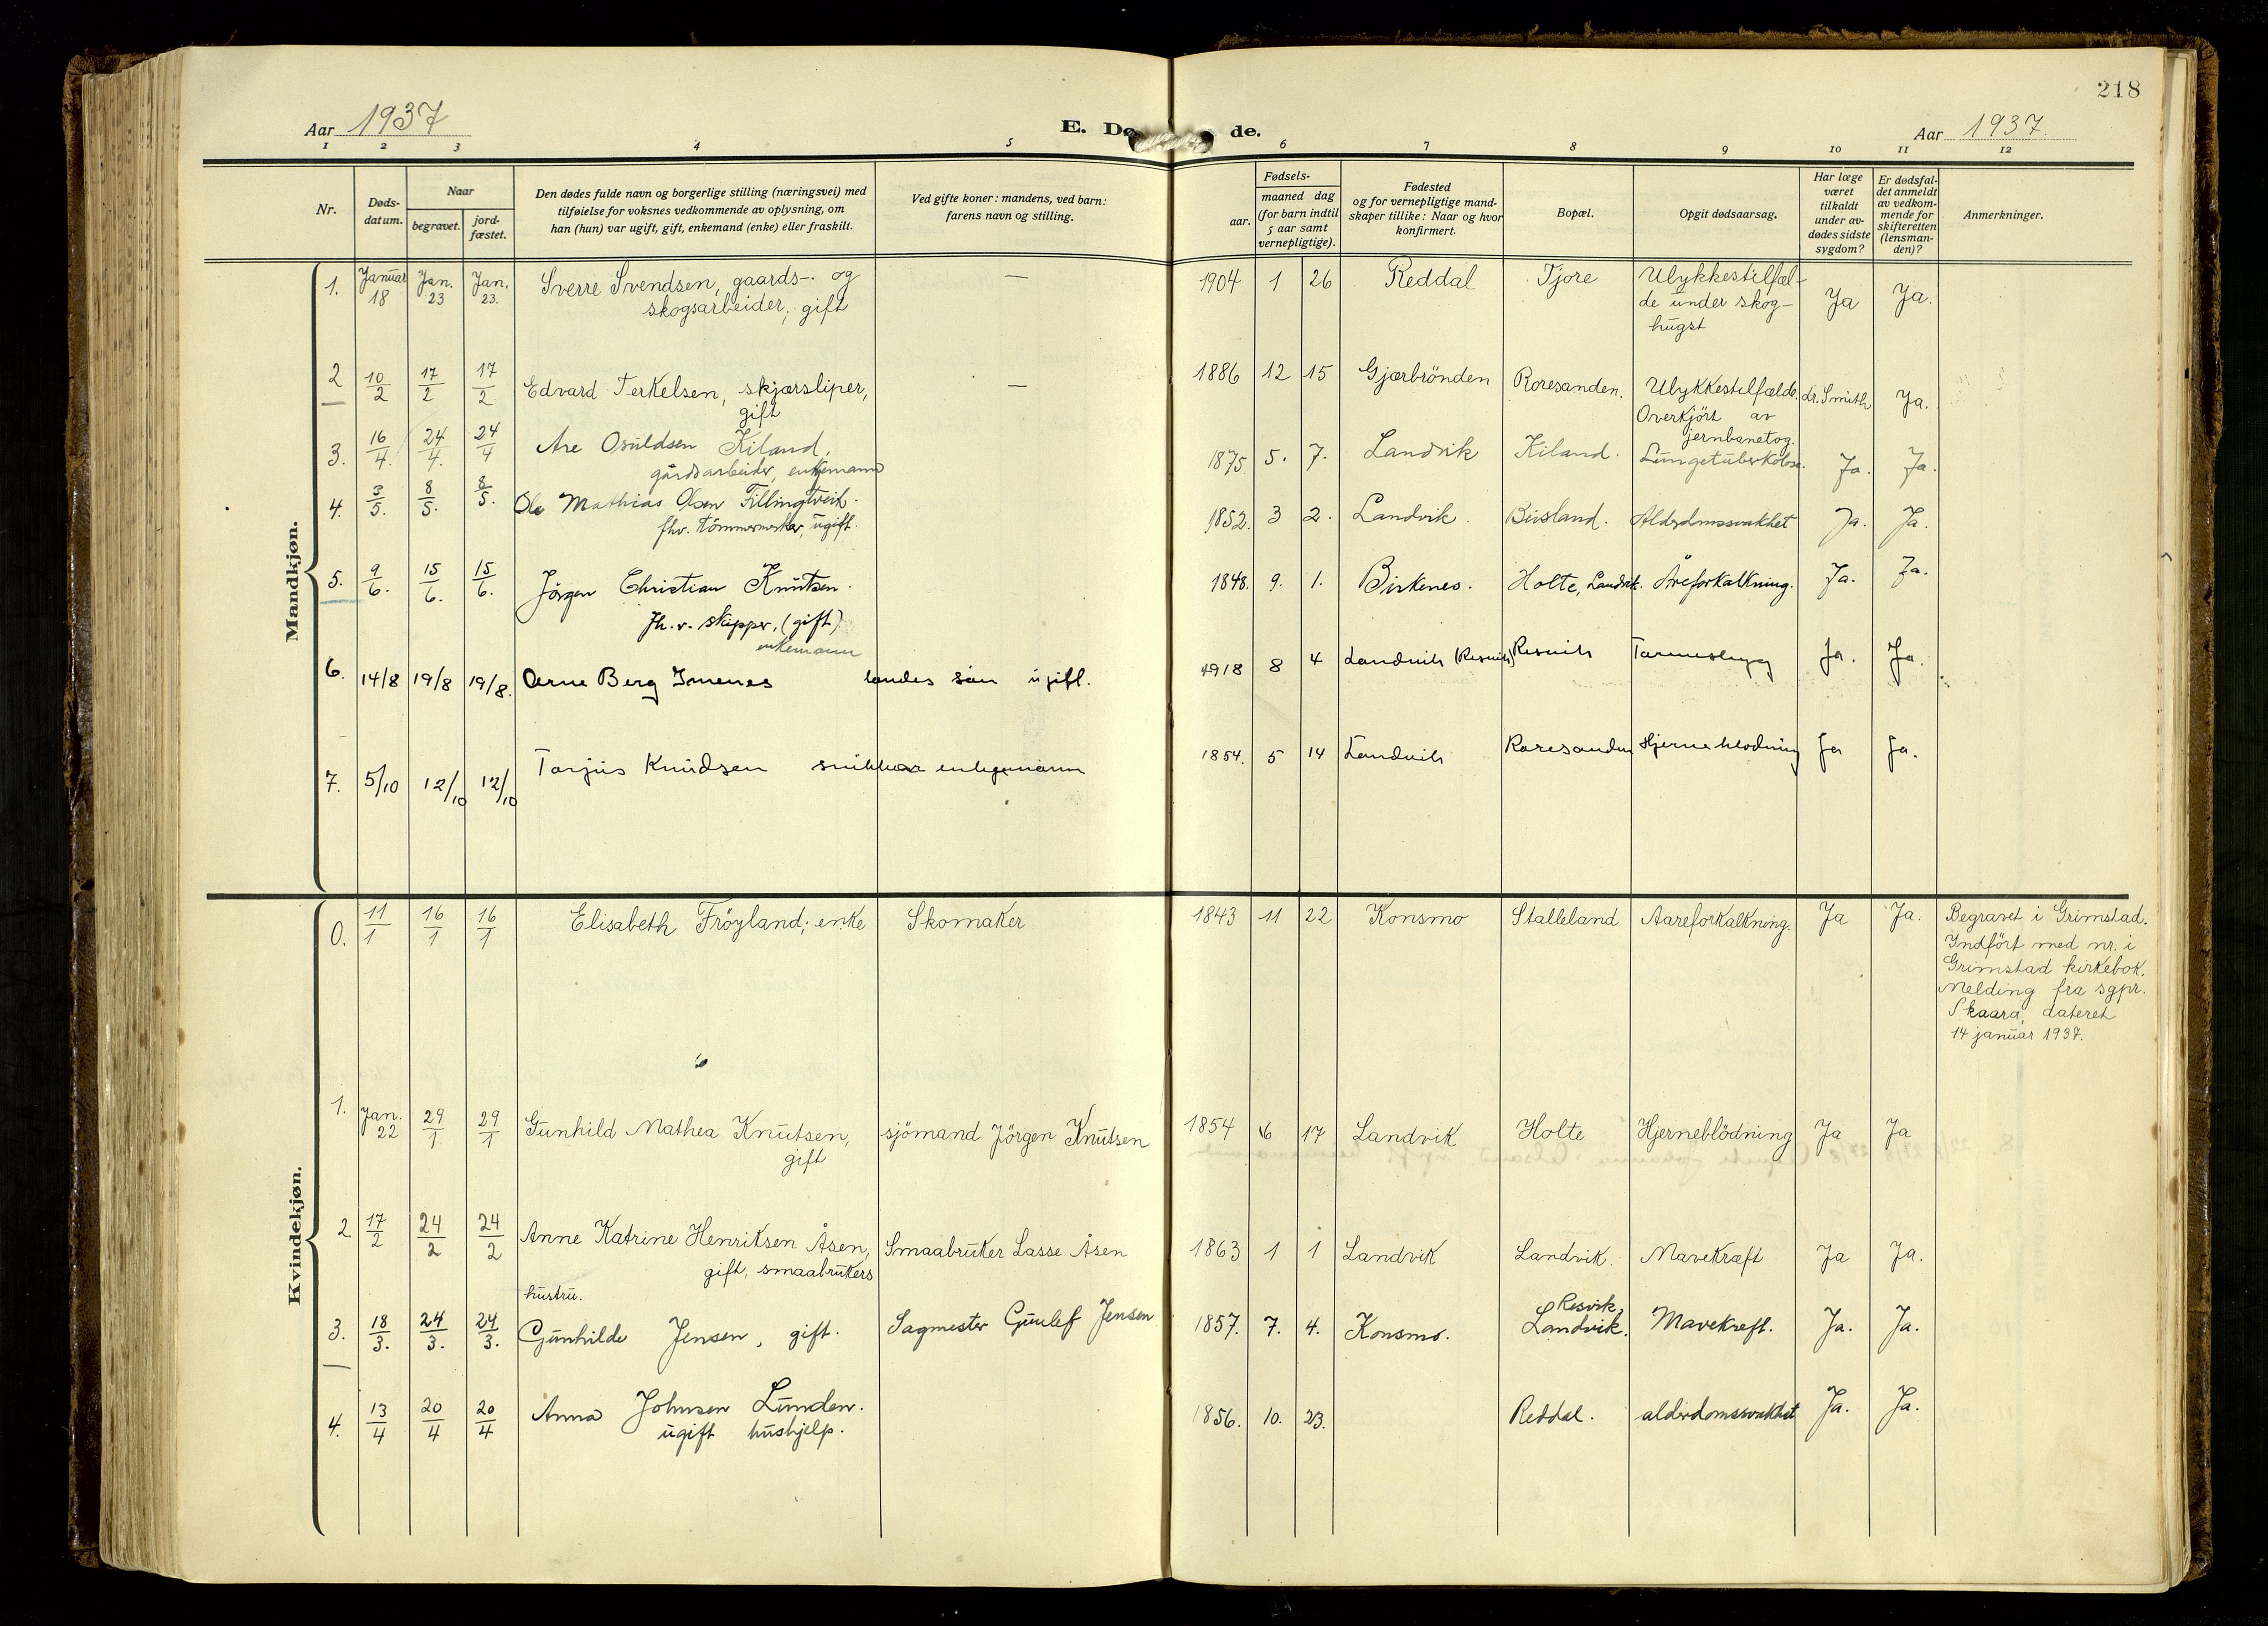 218
Aar 1937
E. Dø de.
Aar 1937.
1 2 3 4 5 6 7 8 9 10 11 12
Nr.
Døds-
datum.
Naar
begravet.
jord-
fæstet.
Den dødes fulde navn og borgerlige stilling (næringsvei) med
tilføielse for voksnes vedkommende av oplysning, om
han (hun) var ugift, gift, enkemand (enke) eller fraskilt.
Ved gifte koner: mandens, ved barn:
farens navn og stilling.
Fødsels-
aar.
maaned dag
(for barn indtil
5 aar samt
vernepligtige).
Fødested
og for vernepligtige mand-
skaper tillike: Naar og hvor
konfirmert.
Bopæl.
Opgit dødsaarsag.
Har læge
været
tilkaldt
under av-
dødes sidste
sygdom?
Er dødsfal-
det anmeldt
av vedkom-
mende for
skifteretten
(lensman-
den)?
Anmerkninger.
Mandkjøn.
1. Januar 18 Jan. 23 Jan. 23. Sverre Svendsen, gaards- og
skogsarbeider, gift
— 1904 1 26 Reddal Tjore Ulykkestilfæl-
de under skog-
hugst
Ja Ja.
2 10/2 17/2 17/2 Edvard Terkelsen, skjærsliper,
gift
— 1886 12 15 Gjærbrönden Roresanden. Ulykkestilfælde.
Overkjört av
jernbanetog.
dr. Smith Ja.
3. 16/4. 24/4. 24/4 Are Osuldsen Kiland,
gårdsarbeider, enkemann
1875. 5. 7. Landvik Kiland. Lungetuberkolose. Ja. Ja.
4. 3/5. 8/5. 8/5. Ole Mathias Olsen Fillingtveit.
fhv. tömmermerker, ugift.
1852. 3 2. Landvik. Beisland. Alderdomssvakhet Ja. Ja.
5. 9/6. 15/6. 15/6. Jörgen Christian Knutsen.
fh. v. skipper, (gift)
enkemann
1848. 9. 1. Birkenes. Holte, Landvik. Åreforkalkning. Ja. Ja.
6. 14/8 19/8 19/8. Arne Berg Imenes landes sön ugift.
1918 8 4 Landvik (Resvik) Resvik Tarmeslyng Ja. Ja.
7. 5/10 12/10 12/10 Tarjus Knudsen snikker enkemann
1854. 5 14 Landvik Roresanden Hjerneblødning Ja Ja.
Kvindekjøn.
0. 11/1 16/1 16/1 Elisabeth Fröyland; enke Skomaker 1843 11 22 Konsmo Stalleland Aareforkalkning. Ja Ja. Begravet i Grimstad.
Indfört med nr. i
Grimstad kirkebok.
Melding fra sgpr.
Skaara, dateret
14 januar 1937.
1. Jan. 22 29/1 29/1 Gunhild Mathea Knutsen,
gift
sjömand Jörgen Knutsen 1854 6 17 Landvik Holte Hjerneblödning Ja Ja
2. 17/2 24/2 24/2 Anne Katrine Henriksen Åsen,
gift, smaabrukers
hustru.
Smaabruker Lasse Åsen 1863 1 1 Landvik Landvik. Mavekræft Ja Ja.
3. 18/3. 24/3. 24/3. Gunhilde Jensen, gift. Sagmester Gunlef Jensen 1857. 7. 4. Konsmo. Resvik,
Landvik. Mavekreft. Ja. Ja.
4. 13/4 20/4 20/4 Anna Johnsen Lunden.
ugift hushjelp.
1856. 10. 23. Reddal. alderdomssvakhet Ja. Ja.